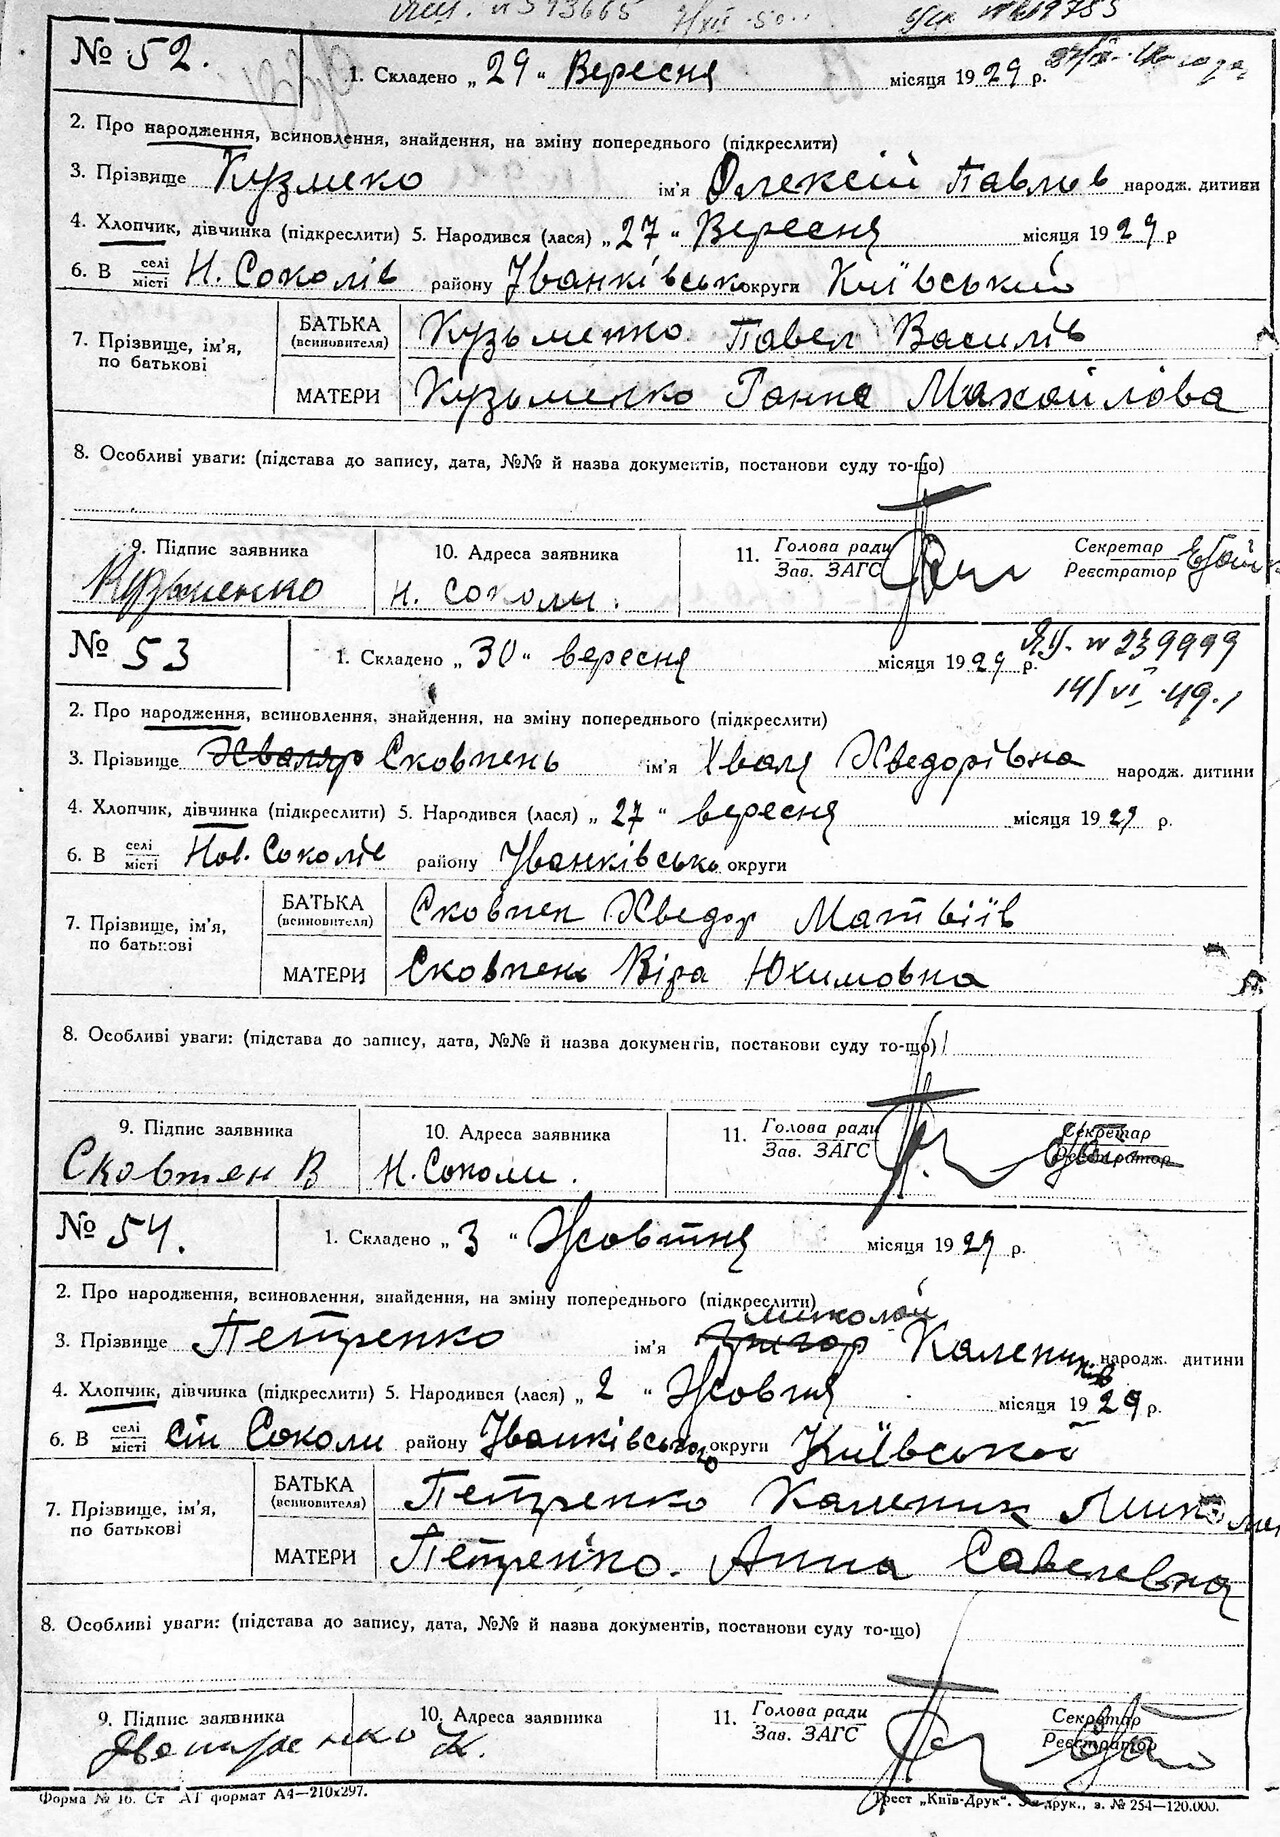 № 52.
1. Складено „29“ Вересня місяця 1929 р.
2. Про народження, всиновлення, знайдення, на зміну попереднього (підкреслити)
3. Прізвище Кузмеко ім'я Олексій Павлов народж. дитини
4. Хлопчик, дівчинка (підкреслити) 5. Народився (лася) „27“ Вересня місяця 1929 р
6. В селі місті Н. Соколів району Іванківськ округи Київський
7. Прізвище, ім'я, по батькові
БАТЬКА (всиновителя) Кузьменко Павел Василів
МАТЕРИ Кузьменко Ганна Махойлова
8. Особливі уваги: (підстава до запису, дата, №№ й назва документів, постанови суду то-що)
9. Підпис заявника 10. Адреса заявника 11. Голова ради Зав. ЗАГС Секретар Реєстратор
Кузьменко Н. Соколи.
№ 53
1. Складено „30“ вересня місяця 1929 р.
№ 239999
14/VI.49.
2. Про народження, всиновлення, знайдення, на зміну попереднього (підкреслити)
3. Прізвище Сковпень ім'я Хваля Хведорівна народж. дитини
4. Хлопчик, дівчинка (підкреслити) 5. Народився (лася) „27“ вересня місяця 1929 р.
6. В селі місті Нов. Соколів району Іванківсько округи
7. Прізвище, ім'я, по батькові
БАТЬКА (всиновителя) Сковпен Хведор Матвіїв
МАТЕРИ Сковпень Віра Юхимовна
8. Особливі уваги: (підстава до запису, дата, №№ й назва документів, постанови суду то-що)
9. Підпис заявника 10. Адреса заявника 11. Голова ради Зав. ЗАГС Секретар Реєстратор
Сковтен В Н. Соколи.
№ 54.
1. Складено „3“ Жовтня місяця 1929 р.
2. Про народження, всиновлення, знайдення, на зміну попереднього (підкреслити)
миколай
3. Прізвище Петренко ім'я Каленików народж. дитини
4. Хлопчик, дівчинка (підкреслити) 5. Народився (лася) „2“ Жовтня місяця 1929 р.
6. В селі місті Соколи району Іванківського округи Київської
7. Прізвище, ім'я, по батькові
БАТЬКА (всиновителя) Петренко Каленик
МАТЕРИ Петренко. Анна Савелевна
8. Особливі уваги: (підстава до запису, дата, №№ й назва документів, постанови суду то-що)
9. Підпис заявника 10. Адреса заявника 11. Голова ради Зав. ЗАГС Секретар Реєстратор
Форма № 16. Ст АТ формат А4—210х297. Трест „Київ-Друк“. друк., з. № 254—120.000.